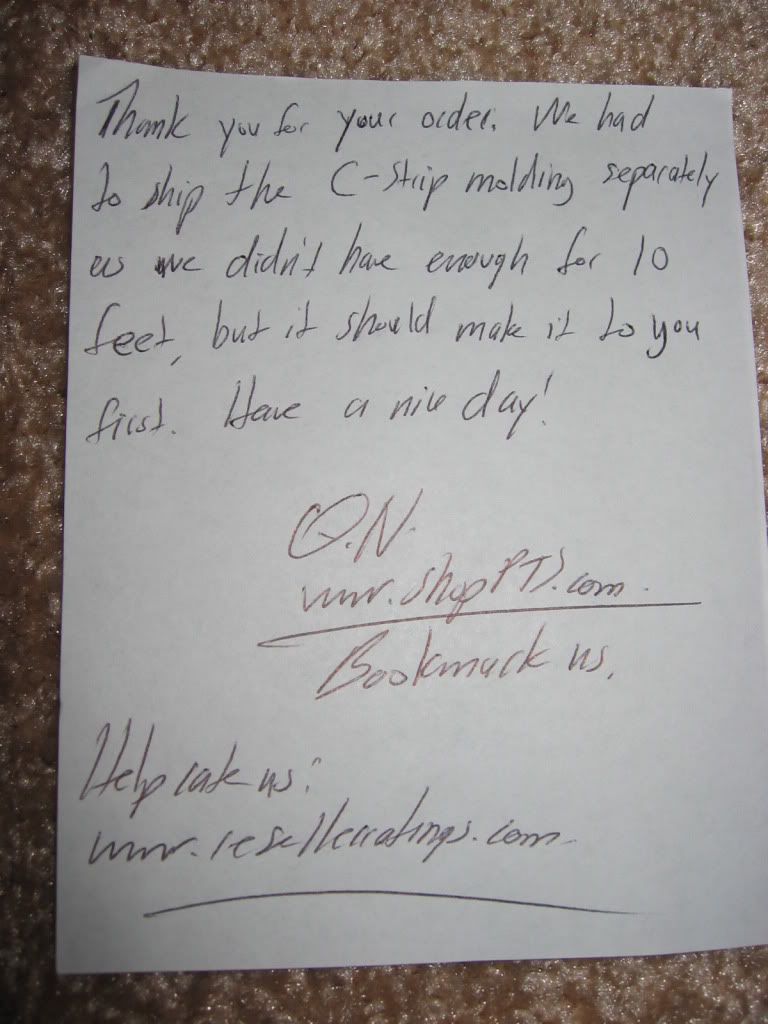 Thank you for your order. We had
to ship the C-Strip molding separately
as we didn't have enough for 10
feet, but it should make it to you
first. Have a nice day!
Q.N.
www.shopPTS.com.
Bookmark us.
Help rate us:
www.resellerratings.com